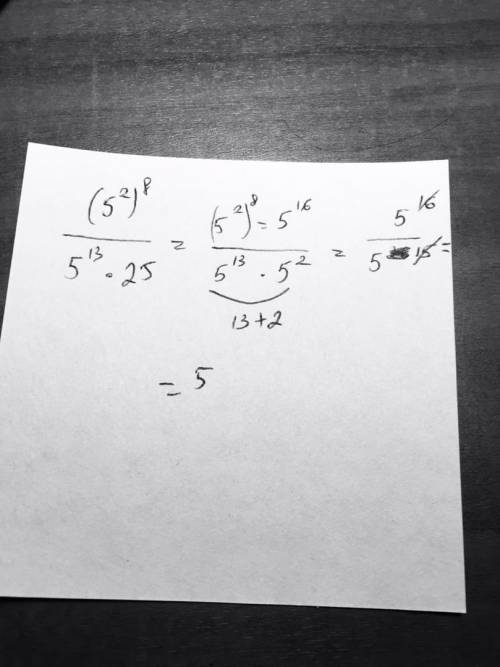 (5²)⁸ / 5¹³ · 25 = (5²)⁸ = 5¹⁶ / 5¹³ · 5² = 5¹⁶ / 5¹⁵ =
13+2
= 5